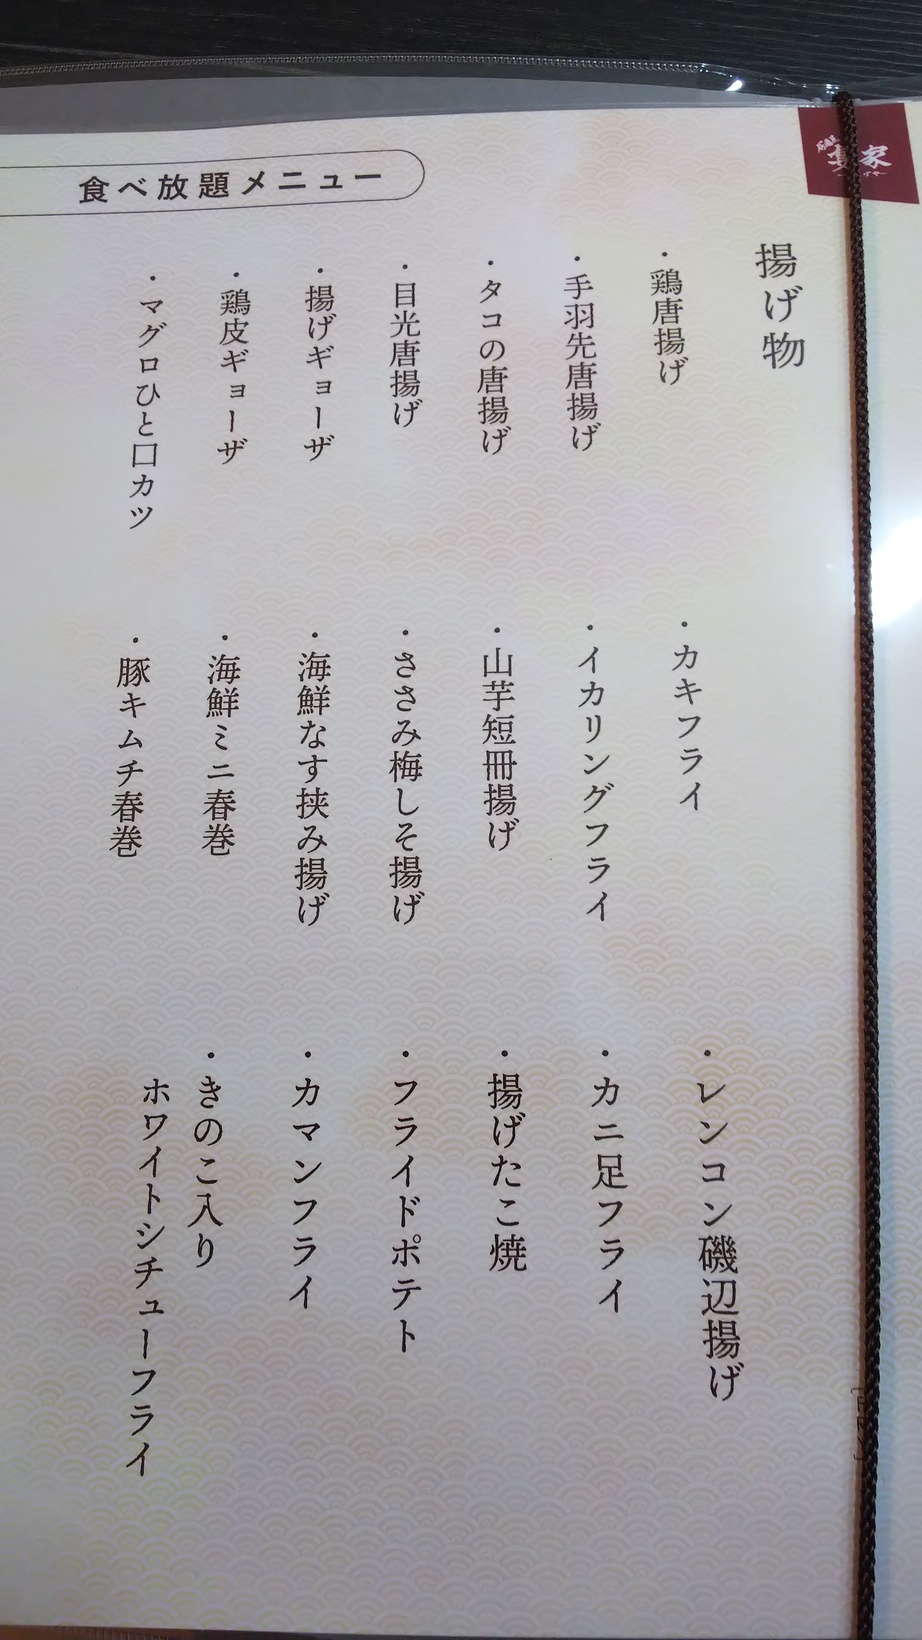 食べ放題メニュー
揚げ物
・鶏唐揚げ
・手羽先唐揚げ
・タコの唐揚げ
・目光唐揚げ
・揚げギョーザ
・鶏皮ギョーザ
・マグロひと口カツ
・カキフライ
・イカリングフライ
・山芋短冊揚げ
・ささみ梅しそ揚げ
・海鮮なす挟み揚げ
・海鮮ミニ春巻
・豚キムチ春巻
・レンコン磯辺揚げ
・カニ足フライ
・揚げたこ焼
・フライドポテト
・カマンフライ
・きのこ入り
ホワイトシチューフライ